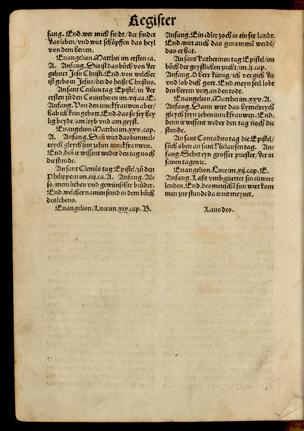 Register
fang. End. wer mich findt/ der findet
das leben/ vnd wirt schöpffen das heyl
von dem herren.
Euangelion Matthei im ersten ca.
A. Anfang. Diß ist das bůch von der
geburt Jesu Christi. End. von welcher
ist geborn Jesus/ der do heißt Christus.
An sant tag Epistel/ in der
ersten zů den Corintheern im .vij. ca. E.
Anfang. Von den iunckfrawen aber/
hab ich kein gebott. End. das sie sey hey
lig beyde am leyb vnd am geyst.
Euangelion Matthei im .xxv. cap.
A. Anfang. Denn wirt das himmel
reych gleych sein zehen iunckfrawen.
End. denn ir wissent weder den tag noch
die stunde.
An sant Clemens tag Epistel/ zů den
Philippern im .iij. ca. A. Anfang. Al
so, meine lieben vnd gewünschte brüder.
End. welcher namen seind in dem bůch
des lebens.
Euangelion. Luce im .xix. cap. B.
Anfang. Ein edler zoch in ein fer landt.
End. wirt auch das genommen werdē/
das er hat.
An sant Katherinen tag Epistel/ im
bůch der geystlichen zucht. im .lj. cap.
A. Anfang. O herr künig/ ich vergich dir
vnd lob dich gott. End. meyn seel lobt
den herren vntz an den todt.
Euangelion Matthei im .xxv. cap.
A. Anfang. Dann wirt das hymelreych
gleych sein zehen iunckfrawen. End.
denn ir wissent weder den tag noch die
stunde.
An sant Conradus tag die Epistel/
sůch oben an sant Niclausen tag. An
fang. Sehet eyn grosser priester/ der in
seinen tagen etc.
Euangelion. Luce im .xij. cap. E.
Anfang. Laßt vmbgürtet sin eüwere
lenden. End. des menschen sun wirt kom
men zur stund die ir nit meynet.
Laus deo.